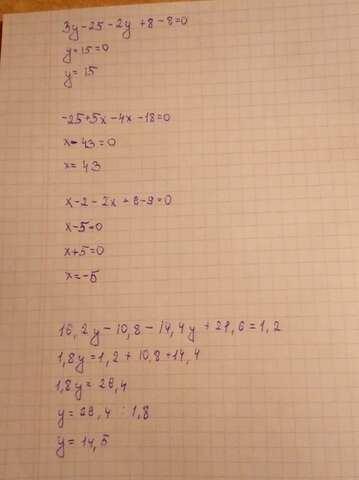 3y-25-2y+8-8=0
y=15=0
y=15
-25+5x-4x-18=0
x-43=0
x=43
x-2-2x+8-9=0
x-5=0
x+5=0
x=-5
16,2y-10,8-14,4y+21,6=1,2
1,8y=1,2+10,8+14,4
1,8y=26,4
y=26,4:1,8
y=14,5